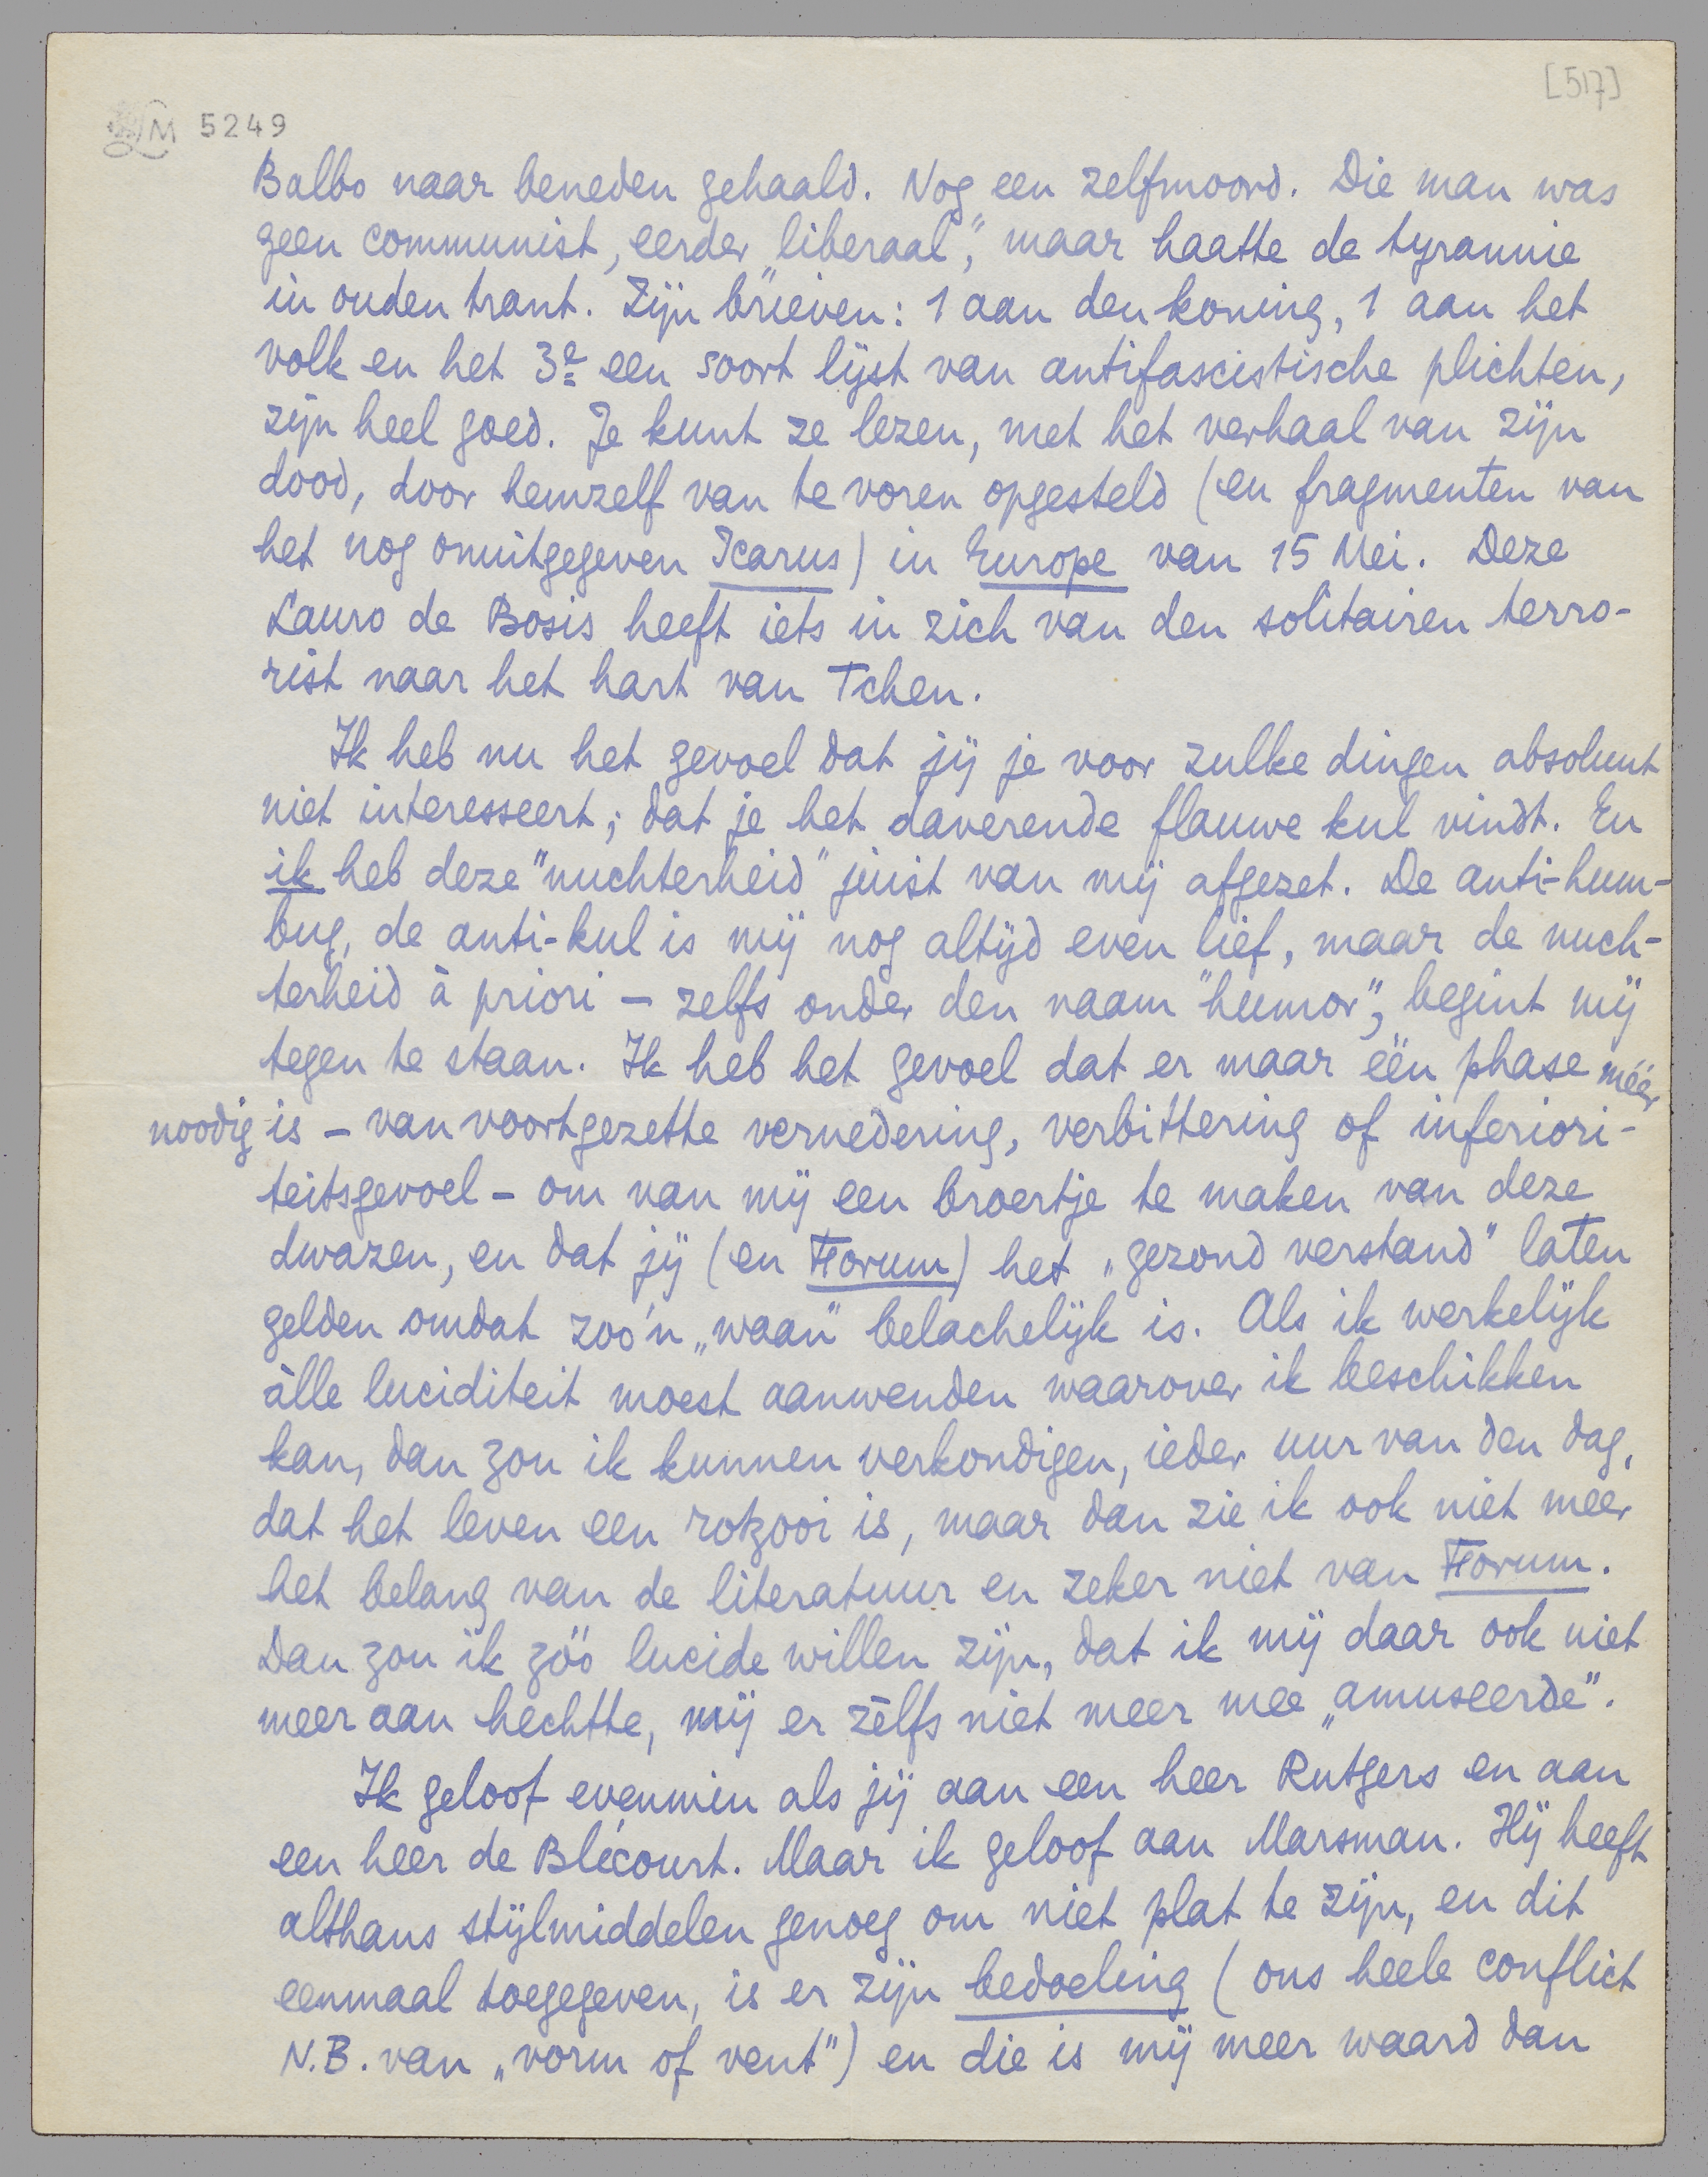 [517]
LM 5249
Balbo naar beneden gehaald. Nog een zelfmoord. Die man was
geen communist, eerder „liberaal", maar haatte de tyrannie
in ouden trant. Zijn brieven: 1 aan den koning, 1 aan het
volk en het 3e een soort lijst van antifascistische plichten,
zijn heel goed. Je kunt ze lezen, met het verhaal van zijn
dood, door hemzelf van te voren opgesteld (en fragmenten van
het nog onuitgegeven Icarus) in Europe van 15 Mei. Deze
Lauro de Bosis heeft iets in zich van den solitairen terro-
rist naar het hart van Tchen.
Ik heb nu het gevoel dat jij je voor zulke dingen absoluut
niet interesseert; dat je het daverende flauwe kul vindt. En
ik heb deze "nuchterheid" juist van mij afgezet. De anti-hum-
bug, de anti-kul is mij nog altijd even lief, maar de nuch-
terheid à priori – zelfs onder den naam "humor", begint mij
tegen te staan. Ik heb het gevoel dat er maar één phase méér
noodig is – van voortgezette vernedering, verbittering of inferiori-
teitsgevoel – om van mij een broertje te maken van deze
dwazen, en dat jij (en Forum) het „gezond verstand" laten
gelden omdat zoo'n „waan" belachelijk is. Als ik werkelijk
àlle luciditeit moest aanwenden waarover ik beschikken
kan, dan zou ik kunnen verkondigen, ieder uur van den dag,
dat het leven een rotzooi is, maar dan zie ik ook niet meer
het belang van de literatuur en zeker niet van Forum.
Dan zou ik zóó lucide willen zijn, dat ik mij daar ook niet
meer aan hechtte, mij er zèlfs niet meer mee „amuseerde".
Ik geloof evenmin als jij aan een heer Rutgers en aan
een heer de Blécourt. Maar ik geloof aan Marsman. Hij heeft
althans stijlmiddelen genoeg om niet plat te zijn, en dit
eenmaal toegegeven, is er zijn bedoeling (ons heele conflict
N.B. van „vorm of vent") en die is mij meer waard dan